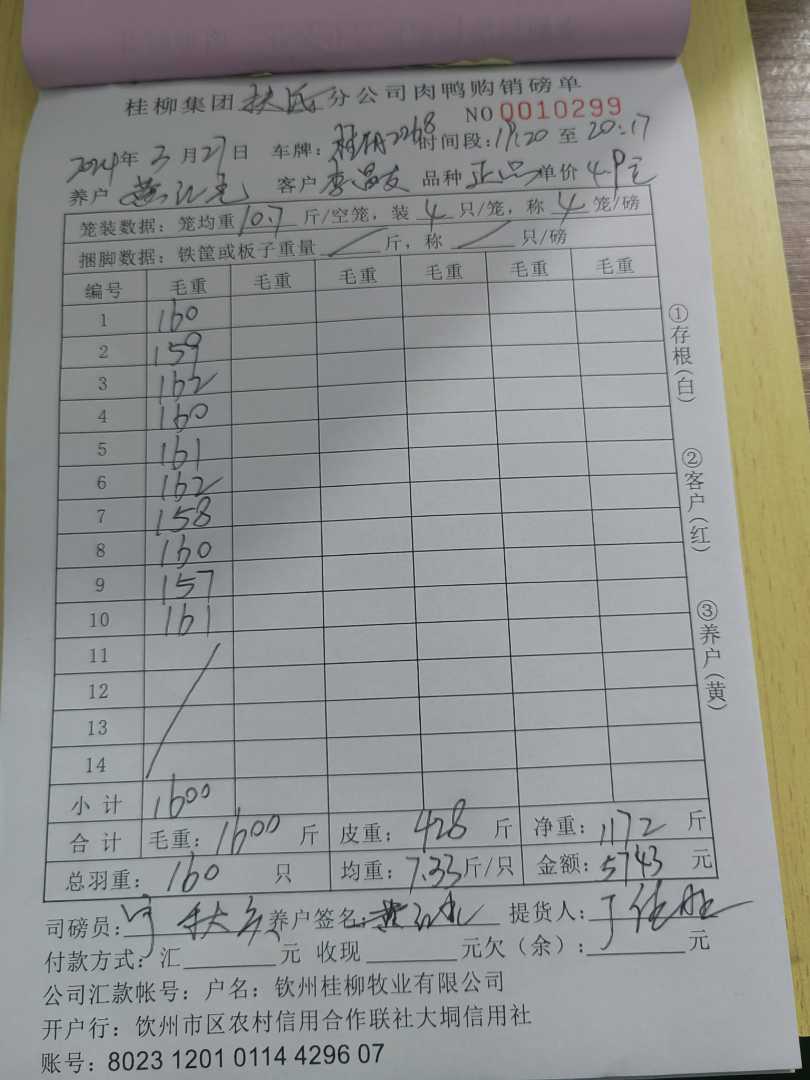 桂柳集团扶氏分公司肉鸭购销磅单
NO 0010299
2024年3月27日 车牌: 2268 时间段:19:20 至 20:17
养户 客户 李昌友 品种 正品 单价 4.9元
笼装数据: 笼均重 10.7 斤/空笼, 装 4 只/笼, 称 4 笼/磅
捆脚数据: 铁筐或板子重量 / 斤, 称 / 只/磅
编号 毛重 毛重 毛重 毛重 毛重 毛重
1 160
2 159
3 162
4 160
5 161
6 162
7 158
8 160
9 157
10 161
11
12
13
14
小计 1600
合计 毛重: 1600 斤 皮重: 428 斤 净重: 1172 斤
总羽重: 160 只 均重: 7.33斤/只 金额: 5743 元
司磅员: 养户签名: 提货人:
付款方式: 汇 元 收现 元欠(余): 元
公司汇款帐号: 户名: 钦州桂柳牧业有限公司
开户行: 钦州市区农村信用合作联社大垌信用社
账号: 8023 1201 0114 4296 07
①存根(白)
②客户(红)
③养户(黄)